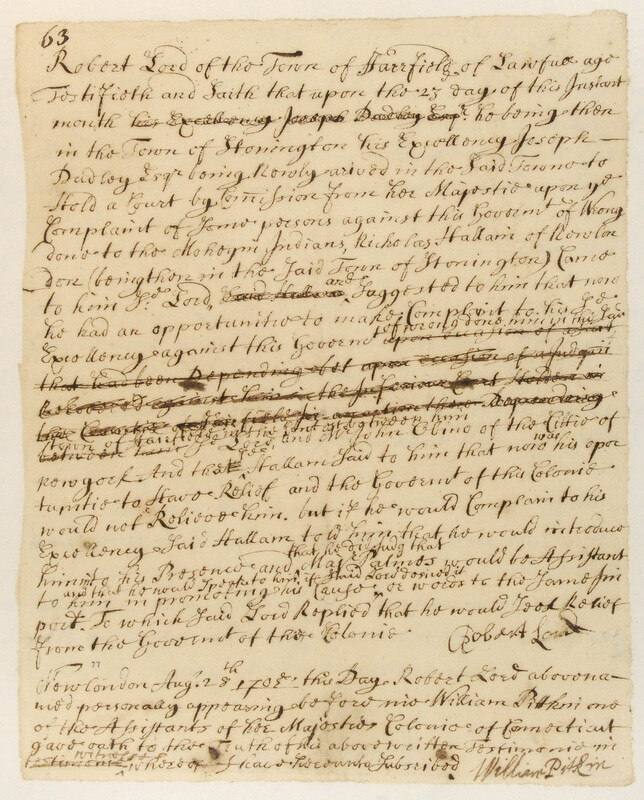 63
Robert Lord of the Town of Fairfield, of Lawfull age
Testifieth and Saith that upon the 23 day of this Instant
month his Excellency Joseph Dudley Esqr. he being then
in the Town of Stonington his Excellency Joseph
Dudley Esqr being Newly arived in the Said Towne to
Hold a Court by Comission from her Majestie upon ye
Complaint of Some persons against this Governt of Wrong
done to the Mohegin Indians, Nicholas Hallam of Newlon
don (being then in the Said Town of Stonington) Came
to him Sd Lord, and Suggested to him that now
he had an opportunitie to make Complaint to his Sd
Excellency against this Governt of wrong done him in
upon occasion of
that had been Depending upon occasion of a Judgmt
against him in the Inferiour Court Holden in
the
town of Fairfield in the between him
between Lord, and Mr John Clino of the Cittie of
newyork And that Sd Hallam Said to him that now was his opor
tunitie to Have Relief and the Governt of this Colonie
would not Relieve him. but if he would Complain to his
Excellency Said Hallam told him that he would introduce
him into his Presence and that he did Say that Majr Palmes would be Assistant
and that he would Speak to him if Said Lord desired it
to him in promoting his Cause or words to the Same Im
port. To which Said Lord Replied that he would Seek Relief
from the Governt of the Colonie Robert Lord
Newlondon Augt. 28th 1705 this Day Robert Lord abovena
med personally appearing before me William Pitkin one
of the Assistants of her Majesties Colonie of Connecticut
gave oath to the Truth of his above written Testimonie in
testimonie witness whereof I have hereunto Subscribed William Pitkin